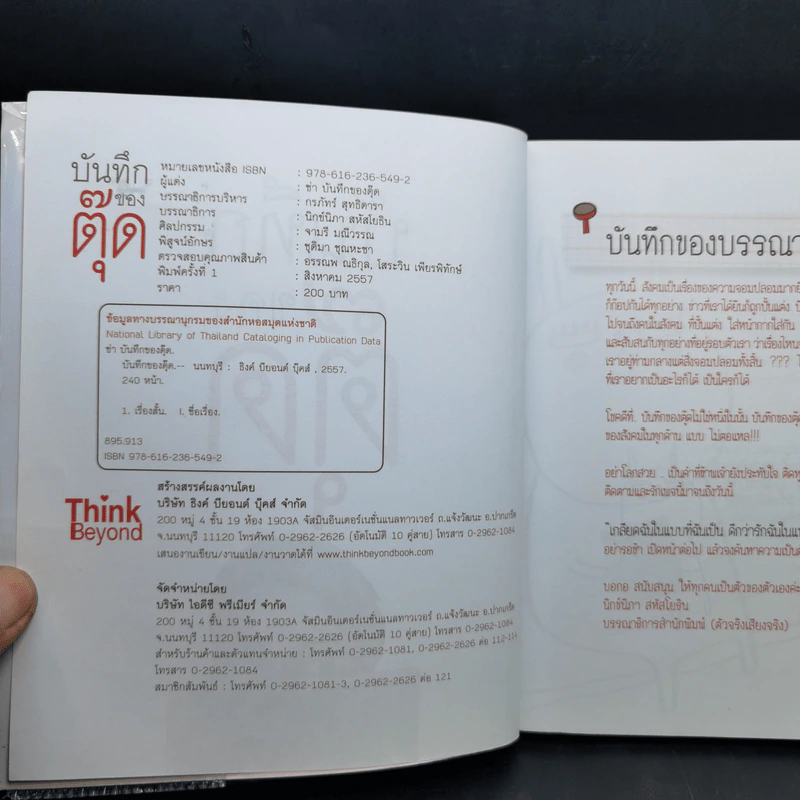 บันทึก
ของ
ตุ๊ด
หมายเลขหนังสือ ISBN : 978-616-236-549-2
ผู้แต่ง : ช่า บันทึกของตุ๊ด
บรรณาธิการบริหาร : กรภัทร์ สุทธิดารา
บรรณาธิการ : นิกข์นิภา สหัสโยธิน
ศิลปกรรม : จามรี มณีวรรณ
พิสูจน์อักษร : ชุติมา ชุณหะชา
ตรวจสอบคุณภาพสินค้า : อรรณพ ณธิกุล, โสระวิน เพียรพิทักษ์
พิมพ์ครั้งที่ 1 : สิงหาคม 2557
ราคา : 200 บาท
ข้อมูลทางบรรณานุกรมของสำนักหอสมุดแห่งชาติ
National Library of Thailand Cataloging in Publication Data
ช่า บันทึกของตุ๊ด.
บันทึกของตุ๊ด.-- นนทบุรี : ธิงค์ บียอนด์ บุ๊คส์ , 2557.
240 หน้า.
1. เรื่องสั้น. I. ชื่อเรื่อง.
895.913
ISBN 978-616-236-549-2
Think
Beyond
สร้างสรรค์ผลงานโดย
บริษัท ธิงค์ บียอนด์ บุ๊คส์ จำกัด
200 หมู่ 4 ชั้น 19 ห้อง 1903A จัสมินอินเตอร์เนชั่นแนลทาวเวอร์ ถ.แจ้งวัฒนะ อ.ปากเกร็ด
จ.นนทบุรี 11120 โทรศัพท์ 0-2962-2626 (อัตโนมัติ 10 คู่สาย) โทรสาร 0-2962-1084
เสนองานเขียน/งานแปล/งานวาดได้ที่ www.thinkbeyondbook.com
จัดจำหน่ายโดย
บริษัท ไอดีซี พรีเมียร์ จำกัด
200 หมู่ 4 ชั้น 19 ห้อง 1903A จัสมินอินเตอร์เนชั่นแนลทาวเวอร์ ถ.แจ้งวัฒนะ อ.ปากเกร็ด
จ.นนทบุรี 11120 โทรศัพท์ 0-2962-2626 (อัตโนมัติ 10 คู่สาย) โทรสาร 0-2962-1084
สำหรับร้านค้าและตัวแทนจำหน่าย : โทรศัพท์ 0-2962-1081, 0-2962-2626 ต่อ 112-114
โทรสาร 0-2962-1084
สมาชิกสัมพันธ์ : โทรศัพท์ 0-2962-1081-3, 0-2962-2626 ต่อ 121
บันทึกของบรรณา
ทุกวันนี้ สังคมเป็นเรื่องของความจอมปลอมมาก
ก็ก๊อปกันได้ทุกอย่าง ข่าวที่เราได้ยินก็ถูกปั้นแต่ง
ไปจนถึงคนในสังคม ที่ปั้นแต่ง ใส่หน้ากากใส่กัน
และสับสนกับทุกอย่างที่อยู่รอบตัวเรา ว่าเรื่องไหน
เราอยู่ท่ามกลางแต่สิ่งจอมปลอมทั้งสิ้น ???
ที่เราอยากเป็นอะไรก็ได้ เป็นใครก็ได้
โชคดีที่.. บันทึกของตุ๊ดไม่ใช่หนึ่งในนั้น บันทึกของตุ๊ด
ของสังคมในทุกด้าน แบบ ไม่ตอแหล!!!
อย่าโลกสวย .. เป็นคำที่ข้าพเจ้ายังประทับใจ
ติดตามและรักเพจนี้มาจนถึงวันนี้
"เกลียดฉันในแบบที่ฉันเป็น ดีกว่ารักฉันใน
อย่ารอช้า เปิดหน้าต่อไป แล้วจงค้นหาความเป็น
บอกอ สนับสนุน ให้ทุกคนเป็นตัวของตัวเองค่ะ
นิกข์นิภา สหัสโยธิน
บรรณาธิการสำนักพิมพ์ (ตัวจริงเสียงจริง)